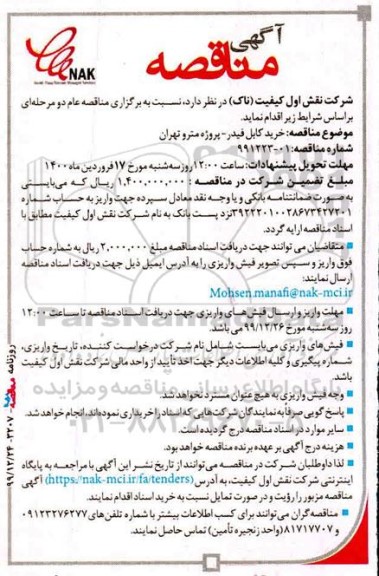 آگهی
مناقصه
NAK
شرکت نقش اول کیفیت (ناک) در نظر دارد، نسبت به برگزاری مناقصه عام دو مرحله‌ای
براساس شرایط زیر اقدام نماید.
موضوع مناقصه: خرید کابل فیدر-پروژه مترو تهران
شماره مناقصه: ۰۱-۹۹۱۲۲۳
مهلت تحویل پیشنهادات: ساعت ۱۲:۰۰ روز سه‌شنبه مورخ ۱۷ فروردین ماه ۱۴۰۰
مبلغ تضمین شرکت در مناقصه: ۱.۴۰۰,۰۰۰,۰۰۰ ریال که می‌بایستی
به صورت ضمانتنامه بانکی و یا وجه نقد معادل سپرده جهت واریز به حساب شماره
۳۹۲۲۲۰۱۰۰۲۸۶۷۳۴۲۷۲۰۱ نزد پست بانک به نام شرکت نقش اول کیفیت مطابق با
اسناد مناقصه ارایه گردد.
متقاضیان می توانند جهت دریافت اسناد مناقصه مبلغ ۲,۰۰۰,۰۰۰ ریال به شماره حساب
فوق واریز و سپس تصویر فیش واریزی را به آدرس ایمیل ذیل جهت دریافت اسناد مناقصه
ارسال نمایند:
Mohsen.manafi@nak-mci.ir
مهلت واریز و ارسال فیش های واریزی جهت دریافت اسناد مناقصه تا ساعت ۱۲:۰۰
روز سه‌شنبه مورخ ۹۹/۱۲/۲۶ می باشد.
فیش‌های واریزی می‌بایست شامل نام شرکت درخواست کننده، تاریخ واریزی،
شماره پیگیری و کلیه اطلاعات دیگر جهت اخذ تأیید از واحد مالی شرکت نقش اول کیفیت
باشد.
وجه فیش واریزی به هیچ عنوان مسترد نخواهد شد.
پاسخ گویی صرفاً به نمایندگان شرکت‌هایی که اسناد را خریداری نموده‌اند، انجام خواهد شد.
سایر موارد در اسناد مناقصه درج گردیده است.
هزینه درج آگهی بر عهده برنده مناقصه خواهد بود.
لذا داوطلبان شرکت در مناقصه می‌توانند از تاریخ نشر این آگهی با مراجعه به پایگاه
اینترنتی شرکت نقش اول کیفیت، به آدرس (https://nak-mci.ir/fa/tenders) آگهی
مناقصه مزبور را رؤیت و در صورت تمایل نسبت به خرید اسناد اقدام نمایند.
مناقصه‌گران می‌توانند برای کسب اطلاعات بیشتر با شماره تلفن‌های ۰۹۱۲۳۲۷۶۲۷۷
و ۸۱۷۱۷۷۰۷ (واحد زنجیره تأمین) تماس حاصل نمایند.
روزنامه مناقصه
۹۹/۱۲/۲۴-۳۳۰۷
ParsNamadData
پایگاه اطلاع رسانی مناقصه و مزایده